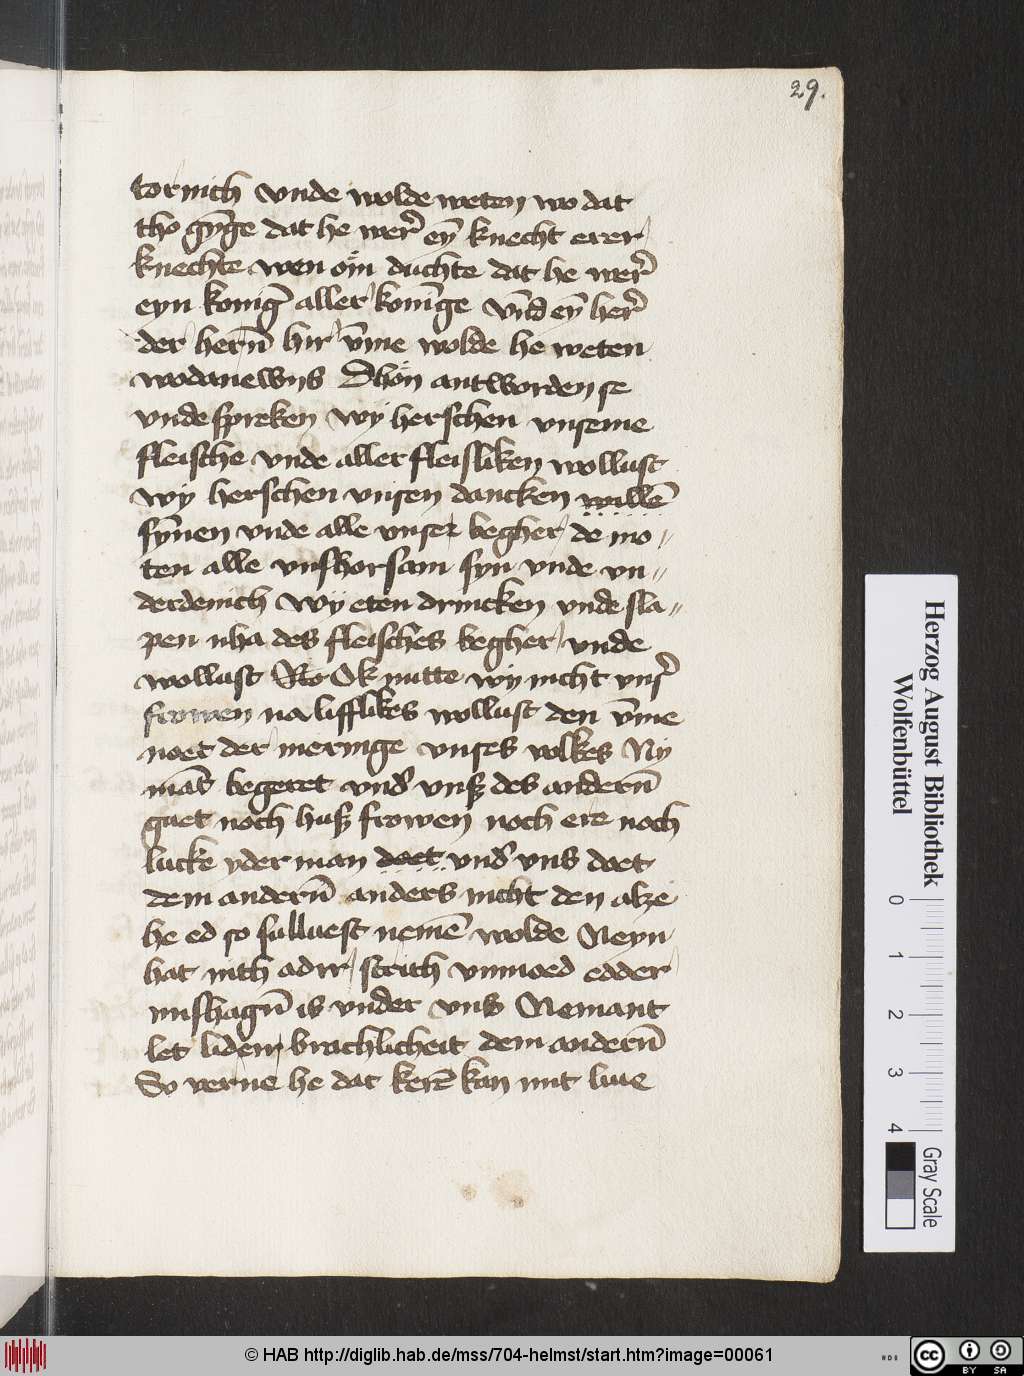 29.
tornich vnde wolde weten wo dat
tho gīnge dat he wer̄ eȳ knecht erer
knechte wen om duchte dat he wer̄
eyn konig aller konīnge vn̄d eȳ her̄
der hern̄ hir v̄me wolde he weten
wodanewijs Dhon antworden se
vnde spreken wy herschen vnseme
fleische vnde aller fleisliken wollust
wy herschen vnsen dancken wille̅
sȳnen vnde alle vnser begher de mo〃
ten alle vnshorsam syn vnde vn〃
derdenich wy eten drincken vnde sla〃
pen nha des fleisches begher vnde
wollust Ok nutte wy nicht vnser̄
frowen na lifflikes wollust den v̄me
noet der meringe vnses volkes Ny
mā̄t begeret vnd̄ vnß des andern̄
guet noch huß frowen noch ere noch
lucke yder man doet vnd̄ vns doet
dem andern̄ anders nicht den alze
he ed so sulluest neme̅ wolde Neyn
hat nith adir strith vnmoed edder
mishagn̄ is vnder vns Nemant
let liden brachlicheit dem andern̄
So verne he dat kere̅ kan mit liue
Herzog August Bibliothek
Wolfenbüttel
0 1 2 3 4
Gray Scale
© HAB http://diglib.hab.de/mss/704-helmst/start.htm?image=00061
HAB
cc BY SA